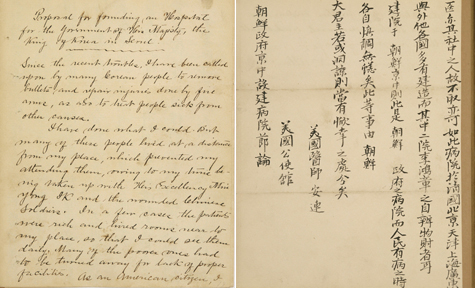 Proposal for founding an Hospital
for the Government of His Majesty, the
King of Korea in Seoul
Since the recent troubles, I have been called
upon by many Corean people to remove
bullets and repair injuries done by fire
arms, as also to treat people sick from
other causes.
I have done what I could. But
many of these people lived at a distance
from my place, which prevented my
attending them, owing to my time be-
ing taken up with His Excellency Min
Yong IK and the wounded Chinese
Soldiers. In a few cases the patients
were rich and hired rooms near to
my place, so that I could see them
daily. Many of the poorer ones had
to be turned away for lack of proper
facilities. As an American citizen, I
亦其社中之人故不取亦可如此病院於淸國北京天津上海廣東
與外他各國多有建造而其中二院李鴻章之自辦物財者耳
建院于 朝鮮京中則此是 朝鮮 政府之病院而人民有病之時
各自愼調無憾矣此等事由 朝鮮
大君主若或洞諒則當有歡幸之處分矣
美國醫師 安連
美國公使館
朝鮮政府京中設建病院節論